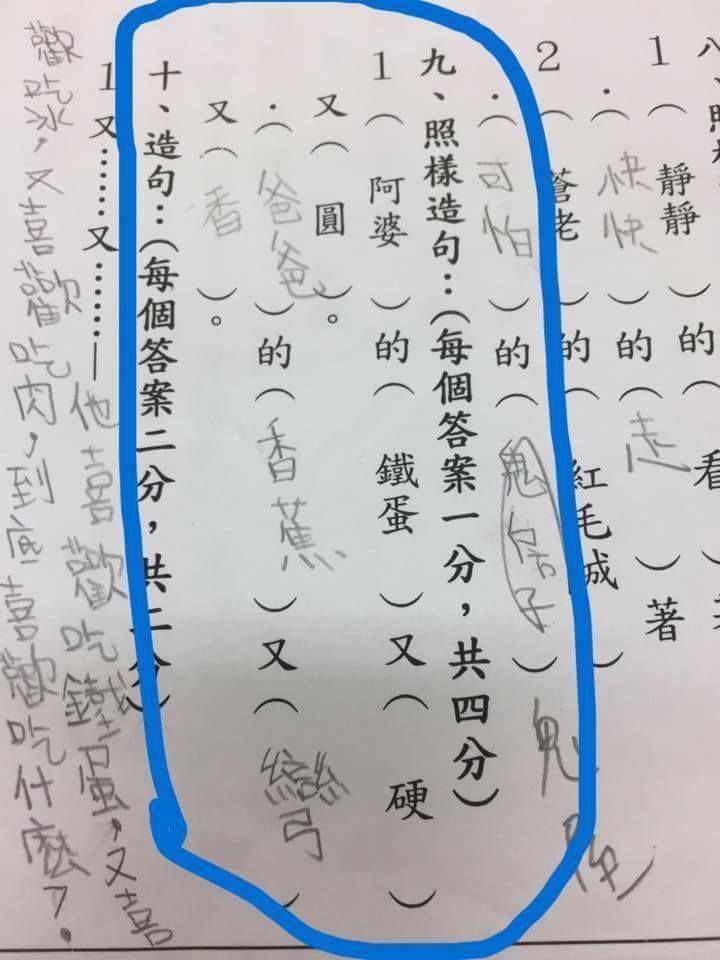 八、照
1（靜靜）的（看
．（快快）的（走）著
2（蒼老）的（紅毛城）
．（可怕）的（鬼 子）鬼
九、照樣造句：（每個答案一分，共四分）
1（阿婆）的（鐵蛋）又（硬）
又（圓）。
．（爸爸）的（香蕉）又（彎）
又（香）。
十、造句：（每個答案二分，共二分）
1又……又……—他喜歡吃鐵蛋，又喜
歡吃冰，又喜歡吃肉，到底喜歡吃什麼？